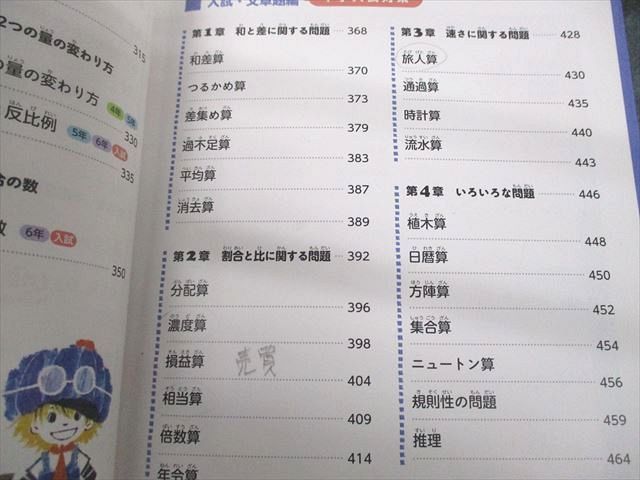 2つの量の変わり方
315
量の変わり方 4年 5年
330
反比例 5年 6年 入試
335
合の数
数 6年 入試
350
入試・文章題編
第1章 和と差に関する問題 368
和差算 370
つるかめ算 373
差集め算 379
過不足算 383
平均算 387
消去算 389
第2章 割合と比に関する問題 392
分配算 396
濃度算 398
損益算 売買 404
相当算 409
倍数算 414
年令算
第3章 速さに関する問題 428
旅人算 430
通過算 435
時計算 440
流水算 443
第4章 いろいろな問題 446
植木算 448
日暦算 450
方陣算 452
集合算 454
ニュートン算 456
規則性の問題 459
推理 464